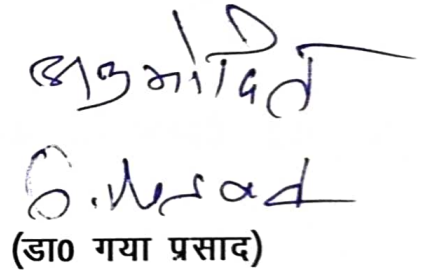 अनुमोदित
G. Prasad
(डा0 गया प्रसाद)